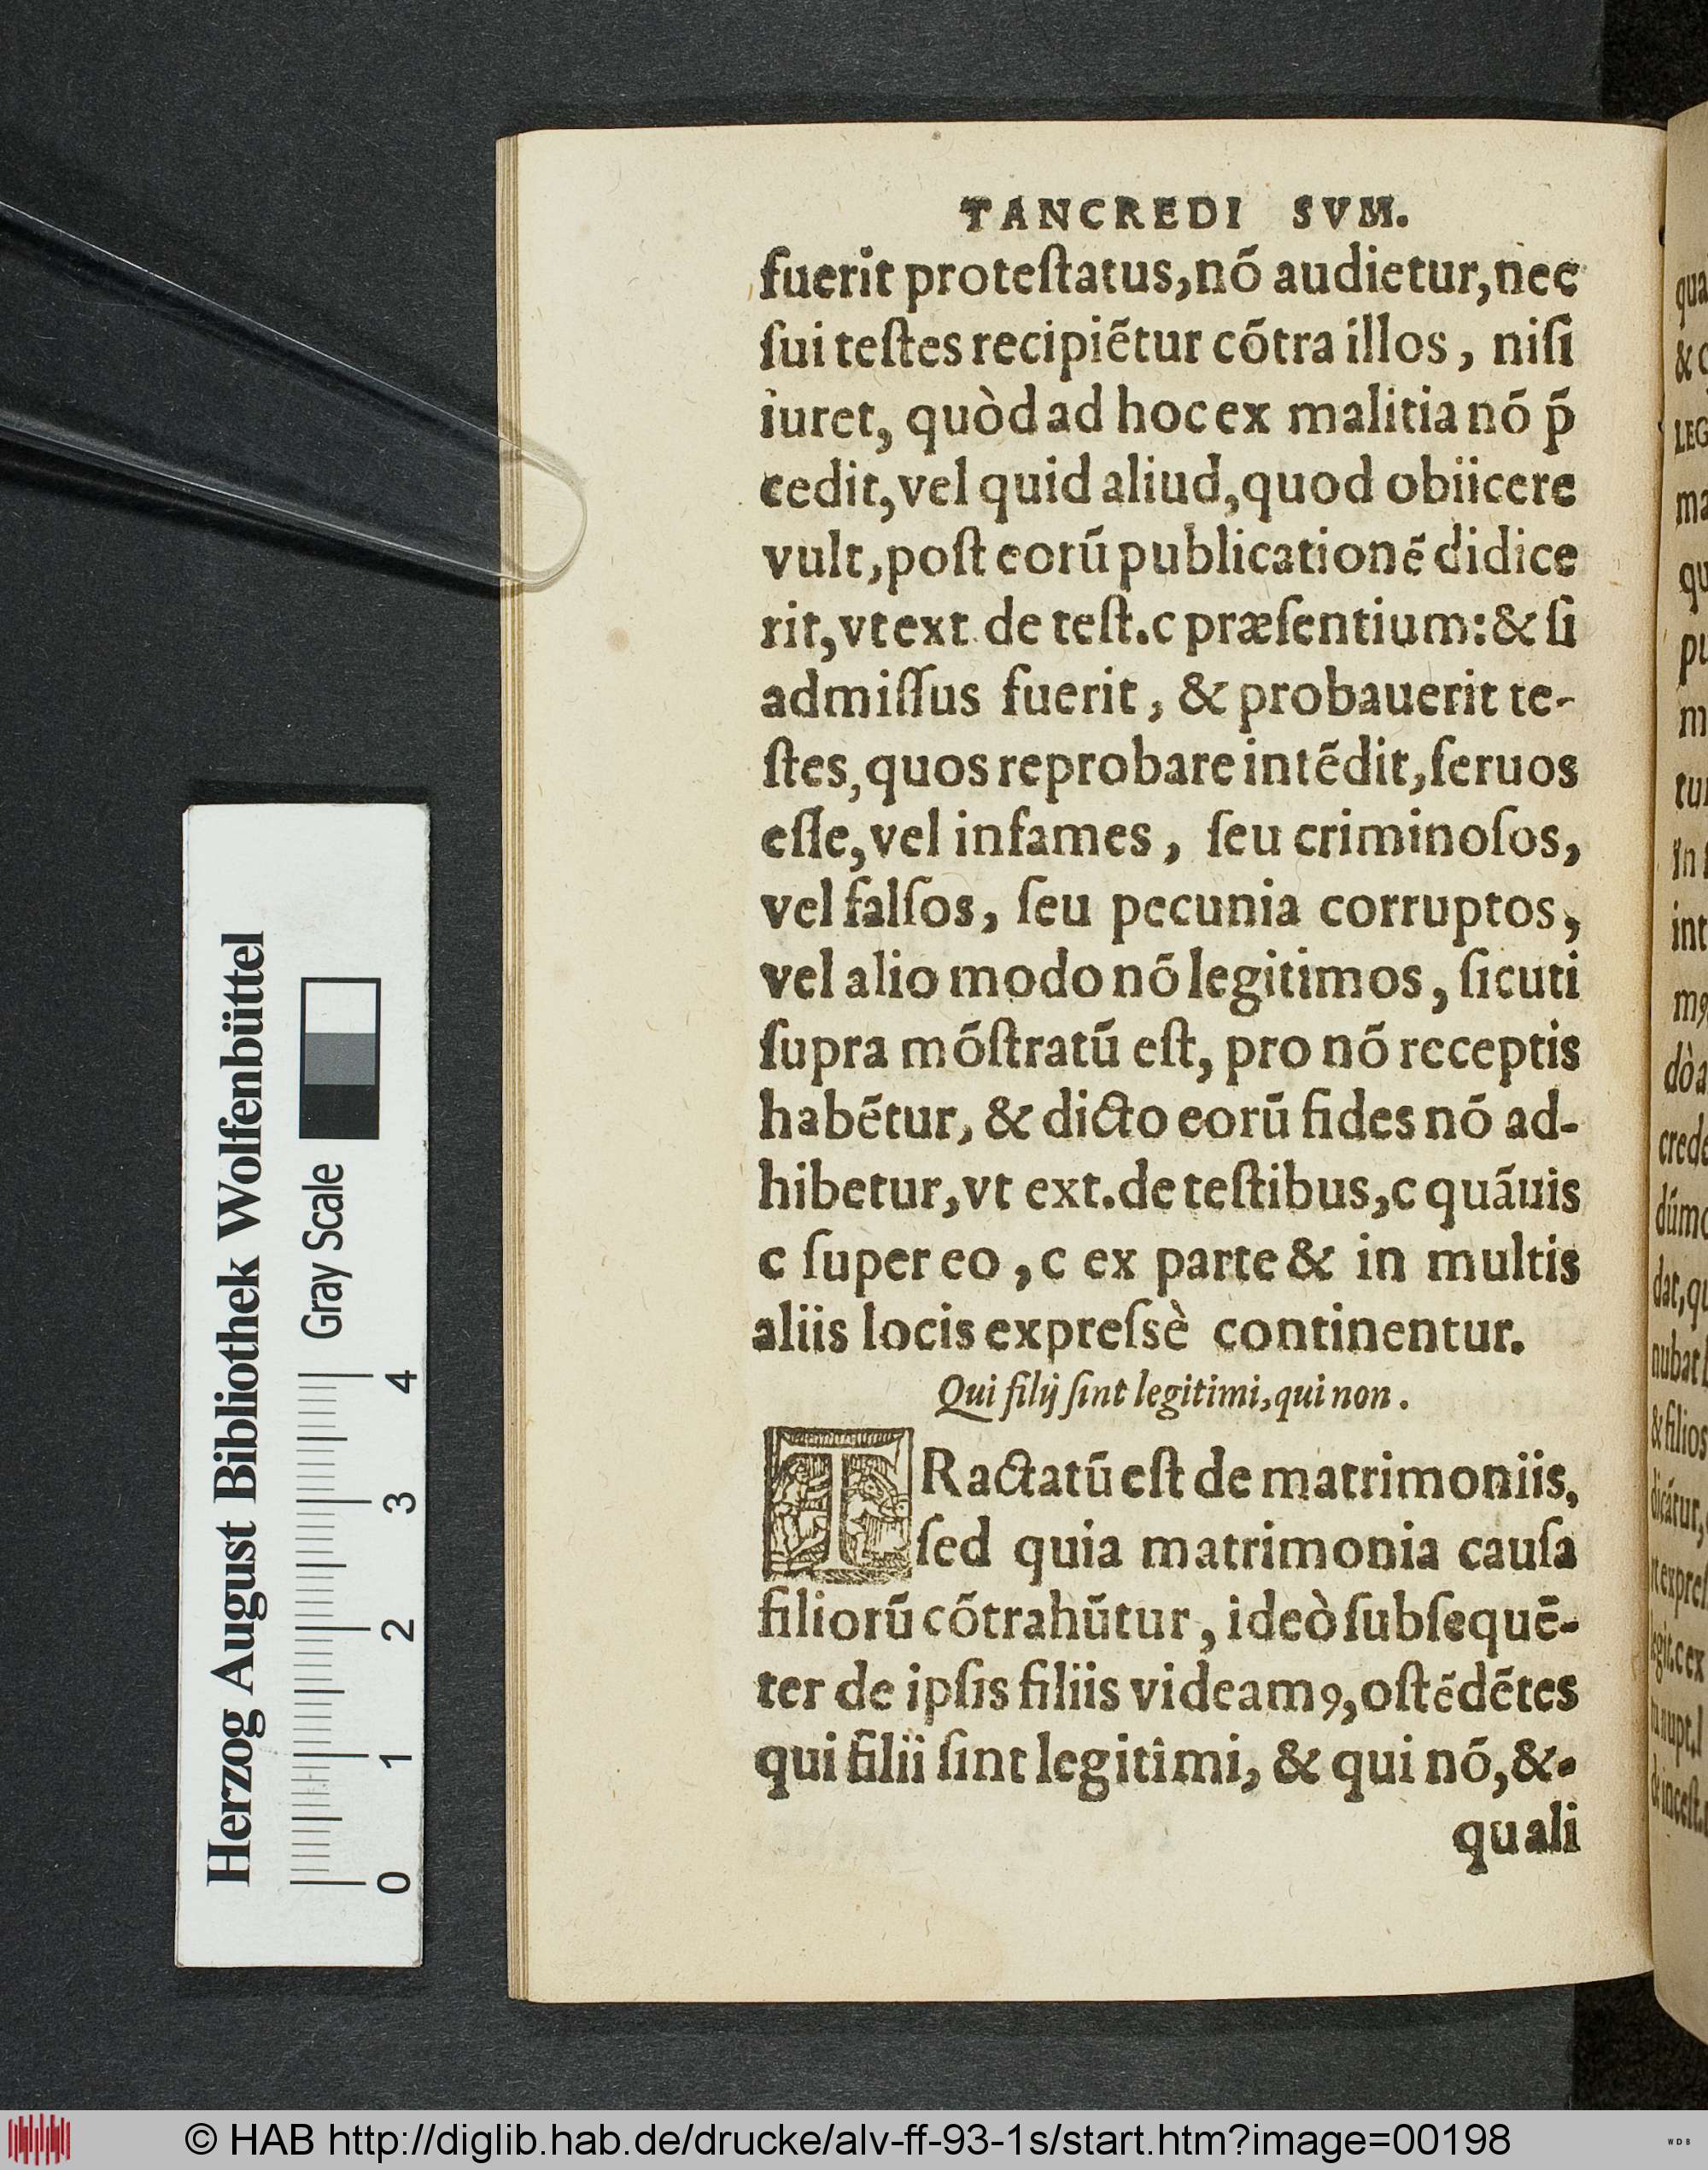 TANCREDI SVM.
fuerit proteſtatus, nō audietur, nec
ſui teſtes recipiētur cōtra illos, niſi
iuret, quòd ad hoc ex malitia nō p̄
cedit, vel quid aliud, quod obiicere
vult, poſt eorū publicationē didice
rit, vt ext de teſt. c præſentium: & ſi
admiſſus fuerit, & probauerit te-
ſtes, quos reprobare intēdit, ſeruos
eſſe, vel infames, ſeu criminoſos,
vel falſos, ſeu pecunia corruptos,
vel alio modo nō legitimos, ſicuti
ſupra mōſtratū eſt, pro nō receptis
habētur, & dicto eorū fides nō ad-
hibetur, vt ext. de teſtibus, c quāuis
c ſuper eo, c ex parte & in multis
aliis locis expreſsè continentur.
Qui filij ſint legitimi, qui non.
TRactatū eſt de matrimoniis,
ſed quia matrimonia cauſa
filiorū cōtrahūtur, ideò ſubſequē-
ter de ipſis filiis videamꝰ, oſtēdētes
qui filii ſint legitimi, & qui nō, &
quali
qua
& c
LEG
ma
qu
pu
m
tur
in
int
dò a
crede
dúmo
dat, qu
nubat
& filios
dicátur,
Herzog August Bibliothek Wolfenbüttel
Gray Scale
0 1 2 3 4
© HAB http://diglib.hab.de/drucke/alv-ff-93-1s/start.htm?image=00198
WDB